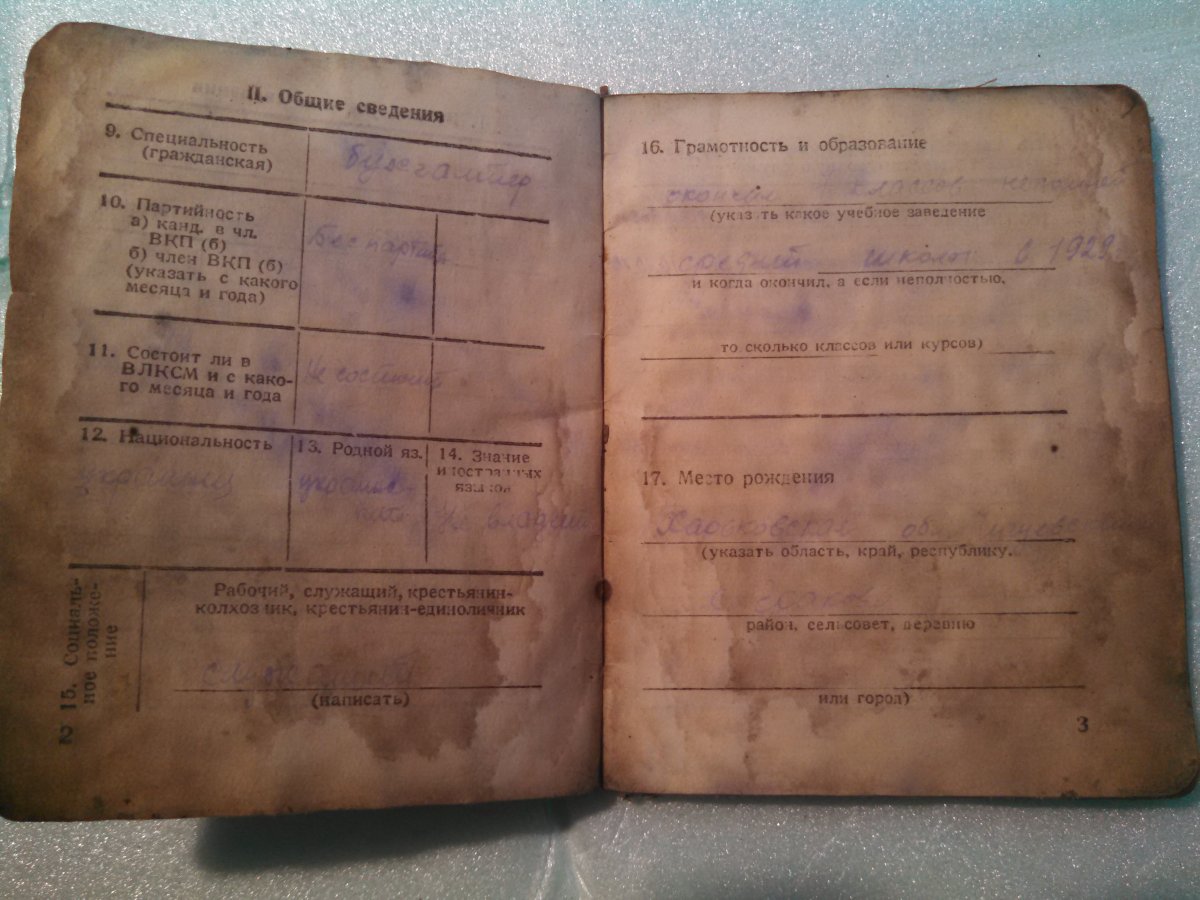 II. Общие сведения
9. Специальность
(гражданская)
Бухгалтер
10. Партийность
а) канд. в чл.
ВКП (б)
б) член ВКП (б)
(указать с какого
месяца и года)
Беспартийн.
11. Состоит ли в
ВЛКСМ и с како-
го месяца и года
Не состоит
12. Национальность
украинец
13. Родной яз.
украинс-
кий
14. Знание
иностранных
языков
Не владеет
15. Социаль-
ное положе-
ние
Рабочий, служащий, крестьянин-
колхозник, крестьянин-единоличник
служащий
(написать)
2
16. Грамотность и образование
окончил классов неполной
(указать какое учебное заведение
средней школы в 1929
и когда окончил, а если неполностью,
то сколько классов или курсов)
17. Место рождения
Харьковская обл
(указать область, край, республику.
с
район, сельсовет, деревню
или город)
3